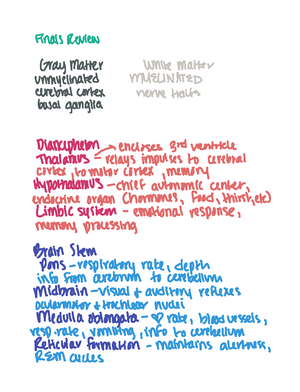 Finals Review
Gray Matter
unmyelinated
cerebral cortex
basal ganglia
White Matter
MYELINATED
nerve tracts
Diancephelon → encloses 3rd ventricle
Thalamus - relays impulses to cerebral
cortex, to motor cortex, memory
Hypothalamus - chief autonomic center,
endocrine organ (hormones, food, thirst, etc)
Limbic system - emotional response,
memory processing
Brain Stem
Pons - respiratory rate, depth
info from cerebrum to cerebellum
Midbrain - visual & auditory reflexes
oculomotor & trochlear nuclei
Medulla oblongata - ♡ rate, blood vessels,
resp. rate, vomiting, info to cerebellum
Reticular formation - maintains alertness,
REM cycles